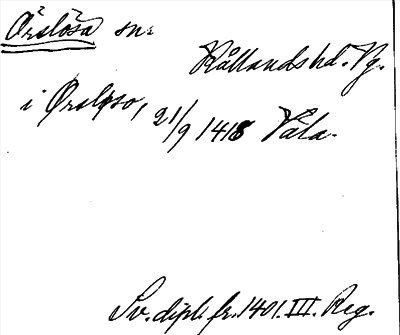 Örslösa sn.
Kållands hd. Vg.
i Ørsløso, 21/9 1418 Vala.
Sv. dipl. fr. 1401. III. Reg.